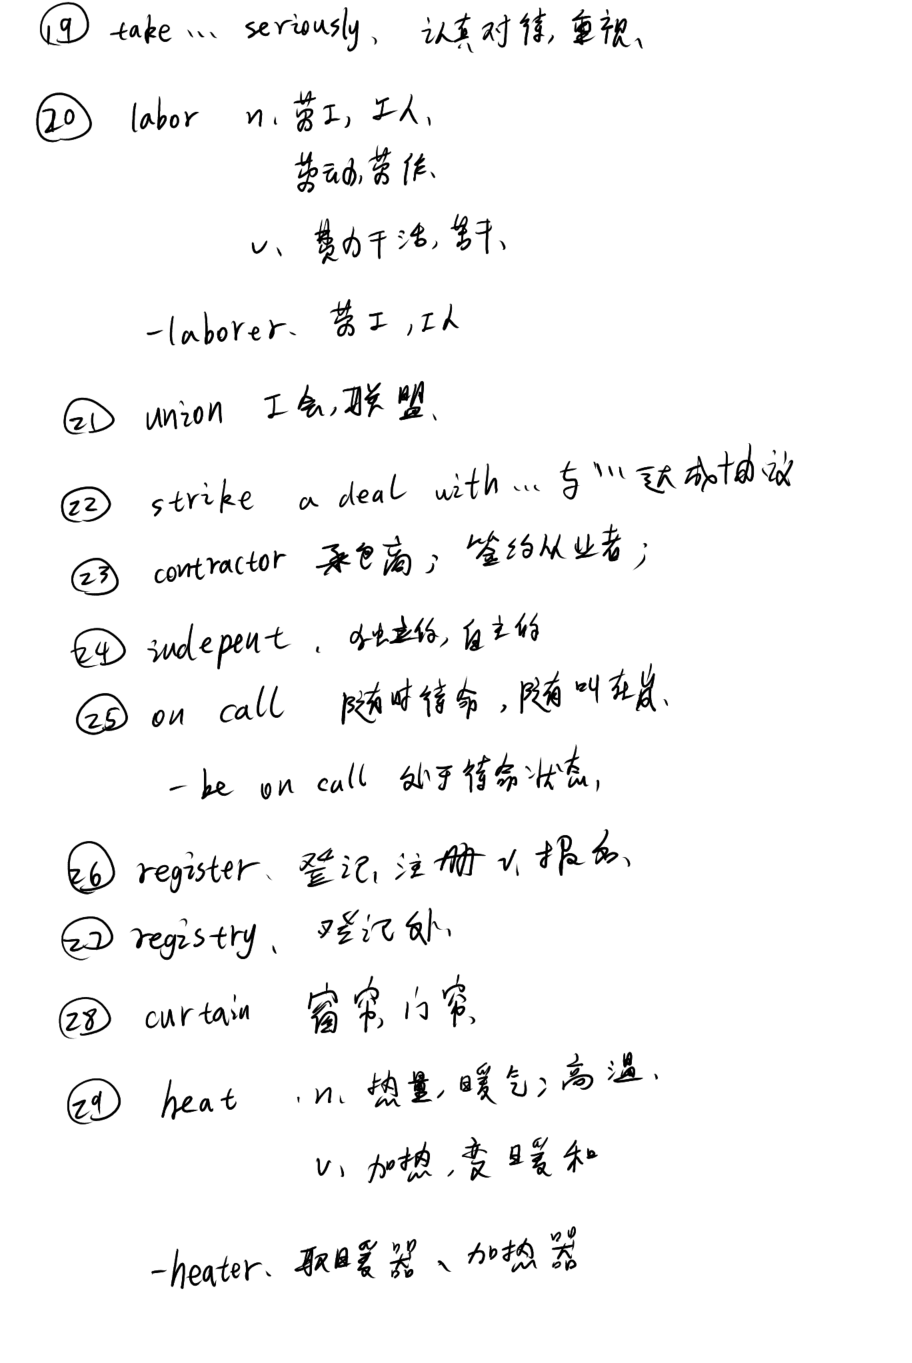 ⑲ take... seriously、 认真对待,重视、
⑳ labor n、劳工,工人、
劳动,劳作、
v、费力干活,苦干、
-laborer、 劳工,工人
㉑ union 工会,联盟、
㉒ strike a deal with... 与...达成协议
㉓ contractor 承包商; 签约从业者;
㉔ indepent 、独立的,自主的
㉕ on call 随时待命,随叫随到、
- be on call 处于待命状态,
㉖ register、 登记,注册 v、报名、
㉗ registry、 登记处、
㉘ curtain 窗帘,门帘、
㉙ heat n、热量,暖气;高温、
v、加热,变暖和
-heater、取暖器、加热器